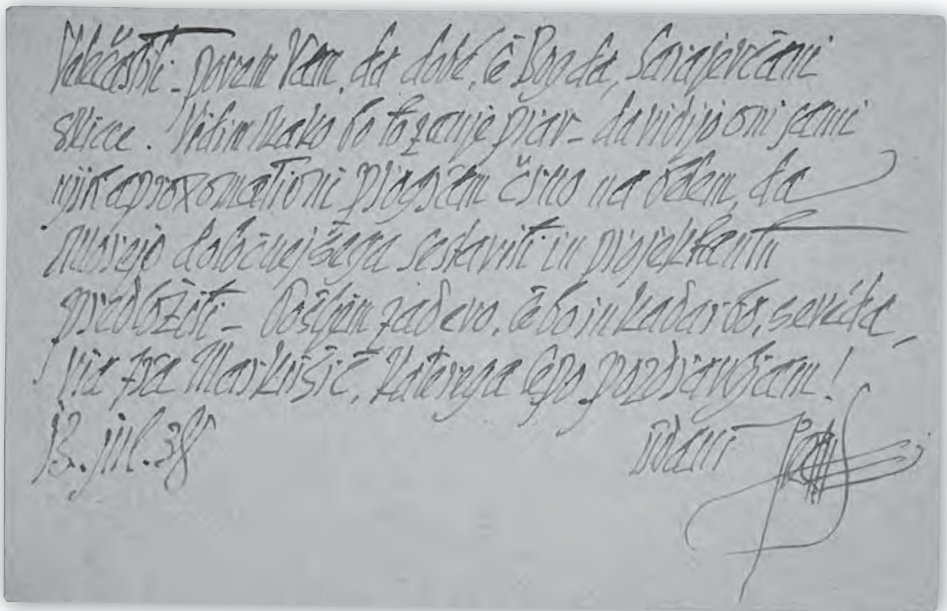 Velečastiti - povem Vam, da dobé, če Bog da, Sarajevčani
skice. Vidim kako bo to zanje prav - da vidijo oni sami
njih aproxomationi program črno na belem, da
morejo določnejšega sestaviti in projektantu
predložiti - Pošljem zadevo, če bo in kadar bo, seveda,
via fra Markušić, katerega lepo pozdravljam!
13. jul. 38 vdani